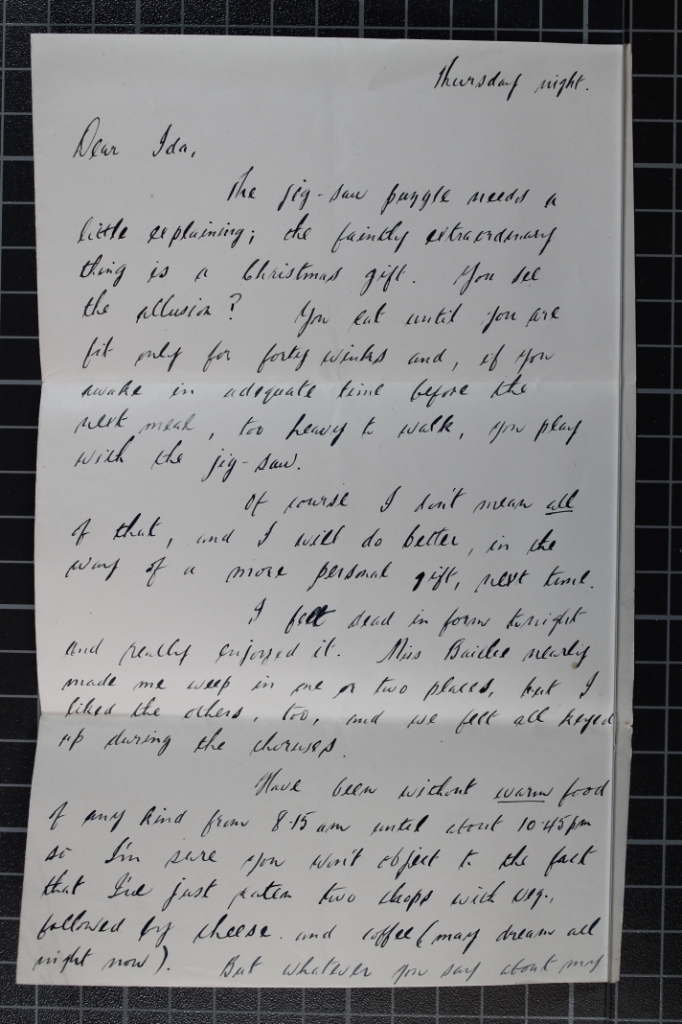 Thursday night.
Dear Ida,
The jig-saw puzzle needs a
little explaining; the faintly extraordinary
thing is a Christmas gift. You see
the allusion? You eat until you are
fit only for forty winks and, if you
awake in adequate time before the
next meal, too heavy to walk, you play
with the jig-saw.
Of course I don't mean all
of that, and I will do better, in the
way of a more personal gift, next time.
I felt dead in form tonight
and really enjoyed it. Miss Bailie nearly
made me weep in one or two places, but I
liked the others, too, and we felt all keyed
up during the choruses.
Have been without warm food
of any kind from 8.15 am until about 10.45pm
so I'm sure you won't object to the fact
that I've just eaten two chops with veg.,
followed by cheese and coffee (may dream all
night now). But whatever you say about my